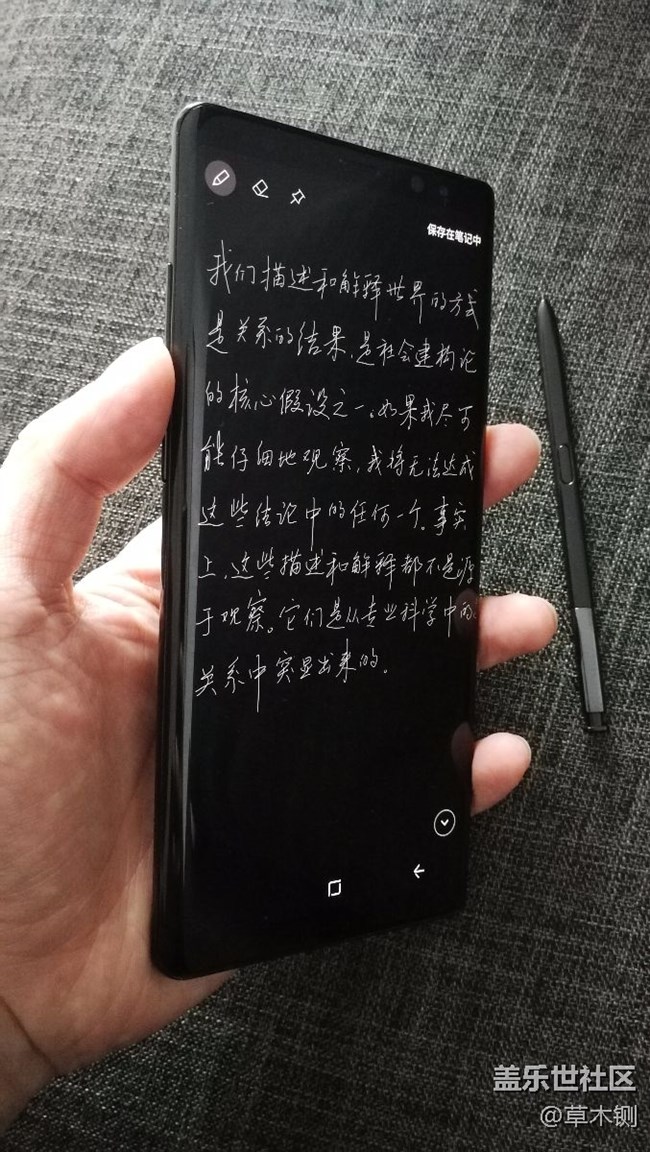 保存在笔记中
我们描述和解释世界的方式
是关系的结果,是社会建构论
的核心假设之一。如果我尽可
能仔细地观察,我将无法达成
这些结论中的任何一个。事实
上,这些描述和解释都不是源
于观察。它们是从专业科学中的
关系中突显出来的。
盖乐世社区
@草木铡